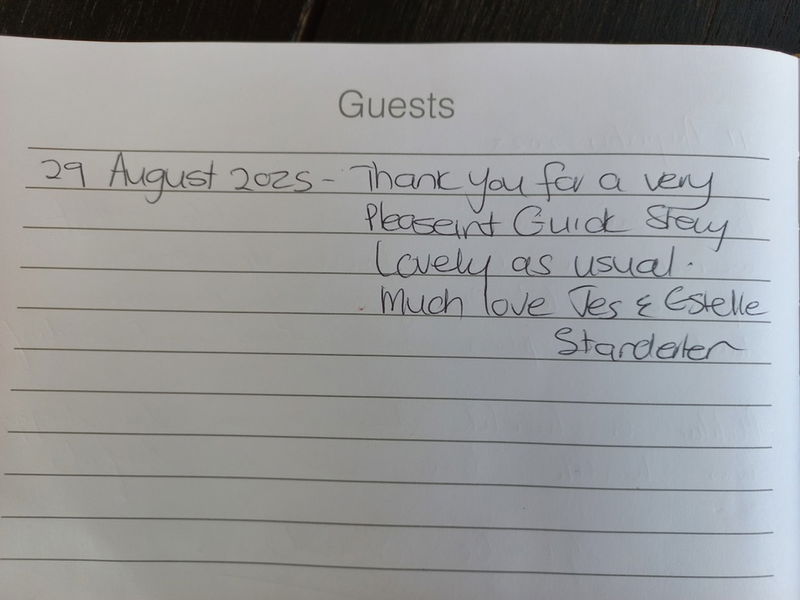 Guests
29 August 2025 - Thank you for a very
Pleaseint Quick Stey
Lovely as usual.
Much love Jes & Estelle